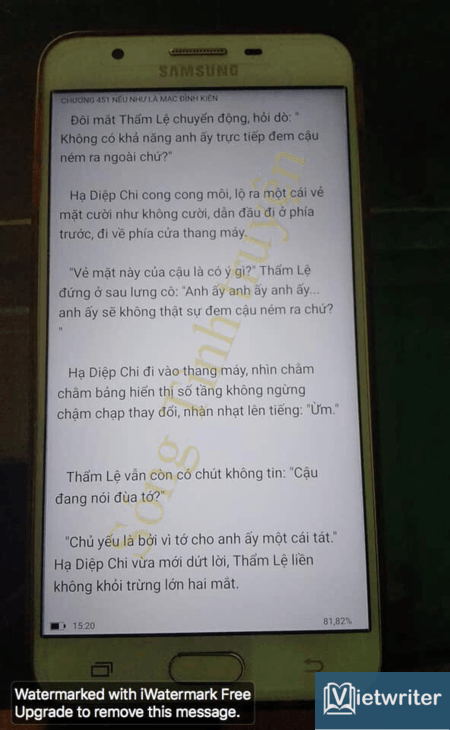 SAMSUNG
CHƯƠNG 451 NẾU NHƯ LÀ MẠC ĐÌNH KIÊN
Đôi mắt Thẩm Lệ chuyển động, hỏi dò: "
Không có khả năng anh ấy trực tiếp đem cậu
ném ra ngoài chứ?"
Hạ Diệp Chi cong cong môi, lộ ra một cái vẻ
mặt cười như không cười, dẫn đầu đi ở phía
trước, đi về phía cửa thang máy.
"Vẻ mặt này của cậu là có ý gì?" Thẩm Lệ
đứng ở sau lưng cô: "Anh ấy anh ấy anh ấy...
anh ấy sẽ không thật sự đem cậu ném ra chứ?
"
Hạ Diệp Chi đi vào thang máy, nhìn chằm
chằm bảng hiển thị số tầng không ngừng
chậm chạp thay đổi, nhàn nhạt lên tiếng: "Ừm."
Thẩm Lệ vẫn còn có chút không tin: "Cậu
đang nói đùa tớ?"
"Chủ yếu là bởi vì tớ cho anh ấy một cái tát."
Hạ Diệp Chi vừa mới dứt lời, Thẩm Lệ liền
không khỏi trừng lớn hai mắt.
Song Tinh truyện
15:20
81,82%
Watermarked with iWatermark Free
Upgrade to remove this message.
Vietwriter